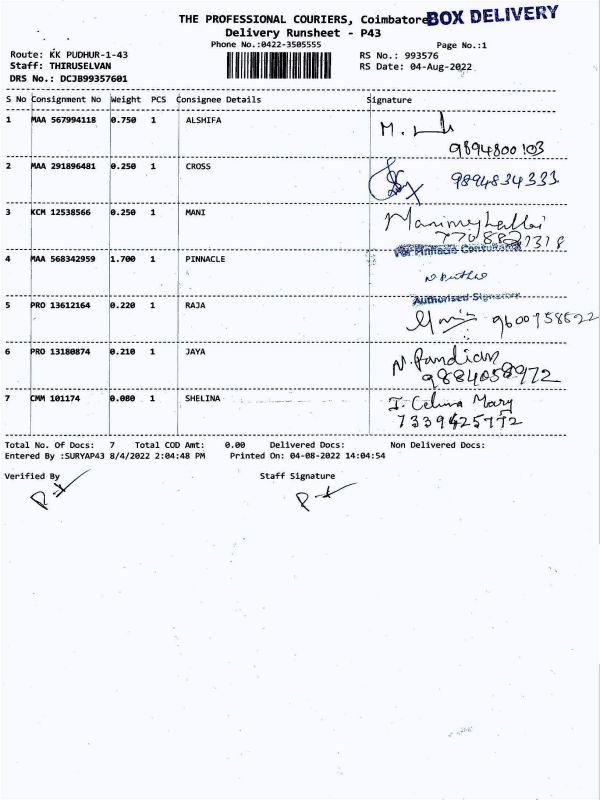 THE PROFESSIONAL COURIERS, Coimbatore BOX DELIVERY
Delivery Runsheet - P43
Phone No.:0422-3505555 Page No.:1
Route: KK PUDHUR-1-43 RS No.: 993576
Staff: THIRUSELVAN RS Date: 04-Aug-2022
DRS No.: DCJB99357601
S No Consignment No Weight PCS Consignee Details Signature
1 MAA 567994118 0.750 1 ALSHIFA M.
9894800103
2 MAA 291896481 0.250 1 CROSS 9894834333
3 KCM 12538566 0.250 1 MANI
For Pinnacle
4 MAA 568342959 1.700 1 PINNACLE
Authorised Signatory
5 PRO 13612164 0.220 1 RAJA
6 PRO 13180874 0.210 1 JAYA N. Pandian
9884058972
7 CMM 101174 0.080 1 SHELINA J. Celina Mary
7339425772
Total No. Of Docs: 7 Total COD Amt: 0.00 Delivered Docs: Non Delivered Docs:
Entered By :SURYAP43 8/4/2022 2:04:48 PM Printed On: 04-08-2022 14:04:54
Verified By Staff Signature